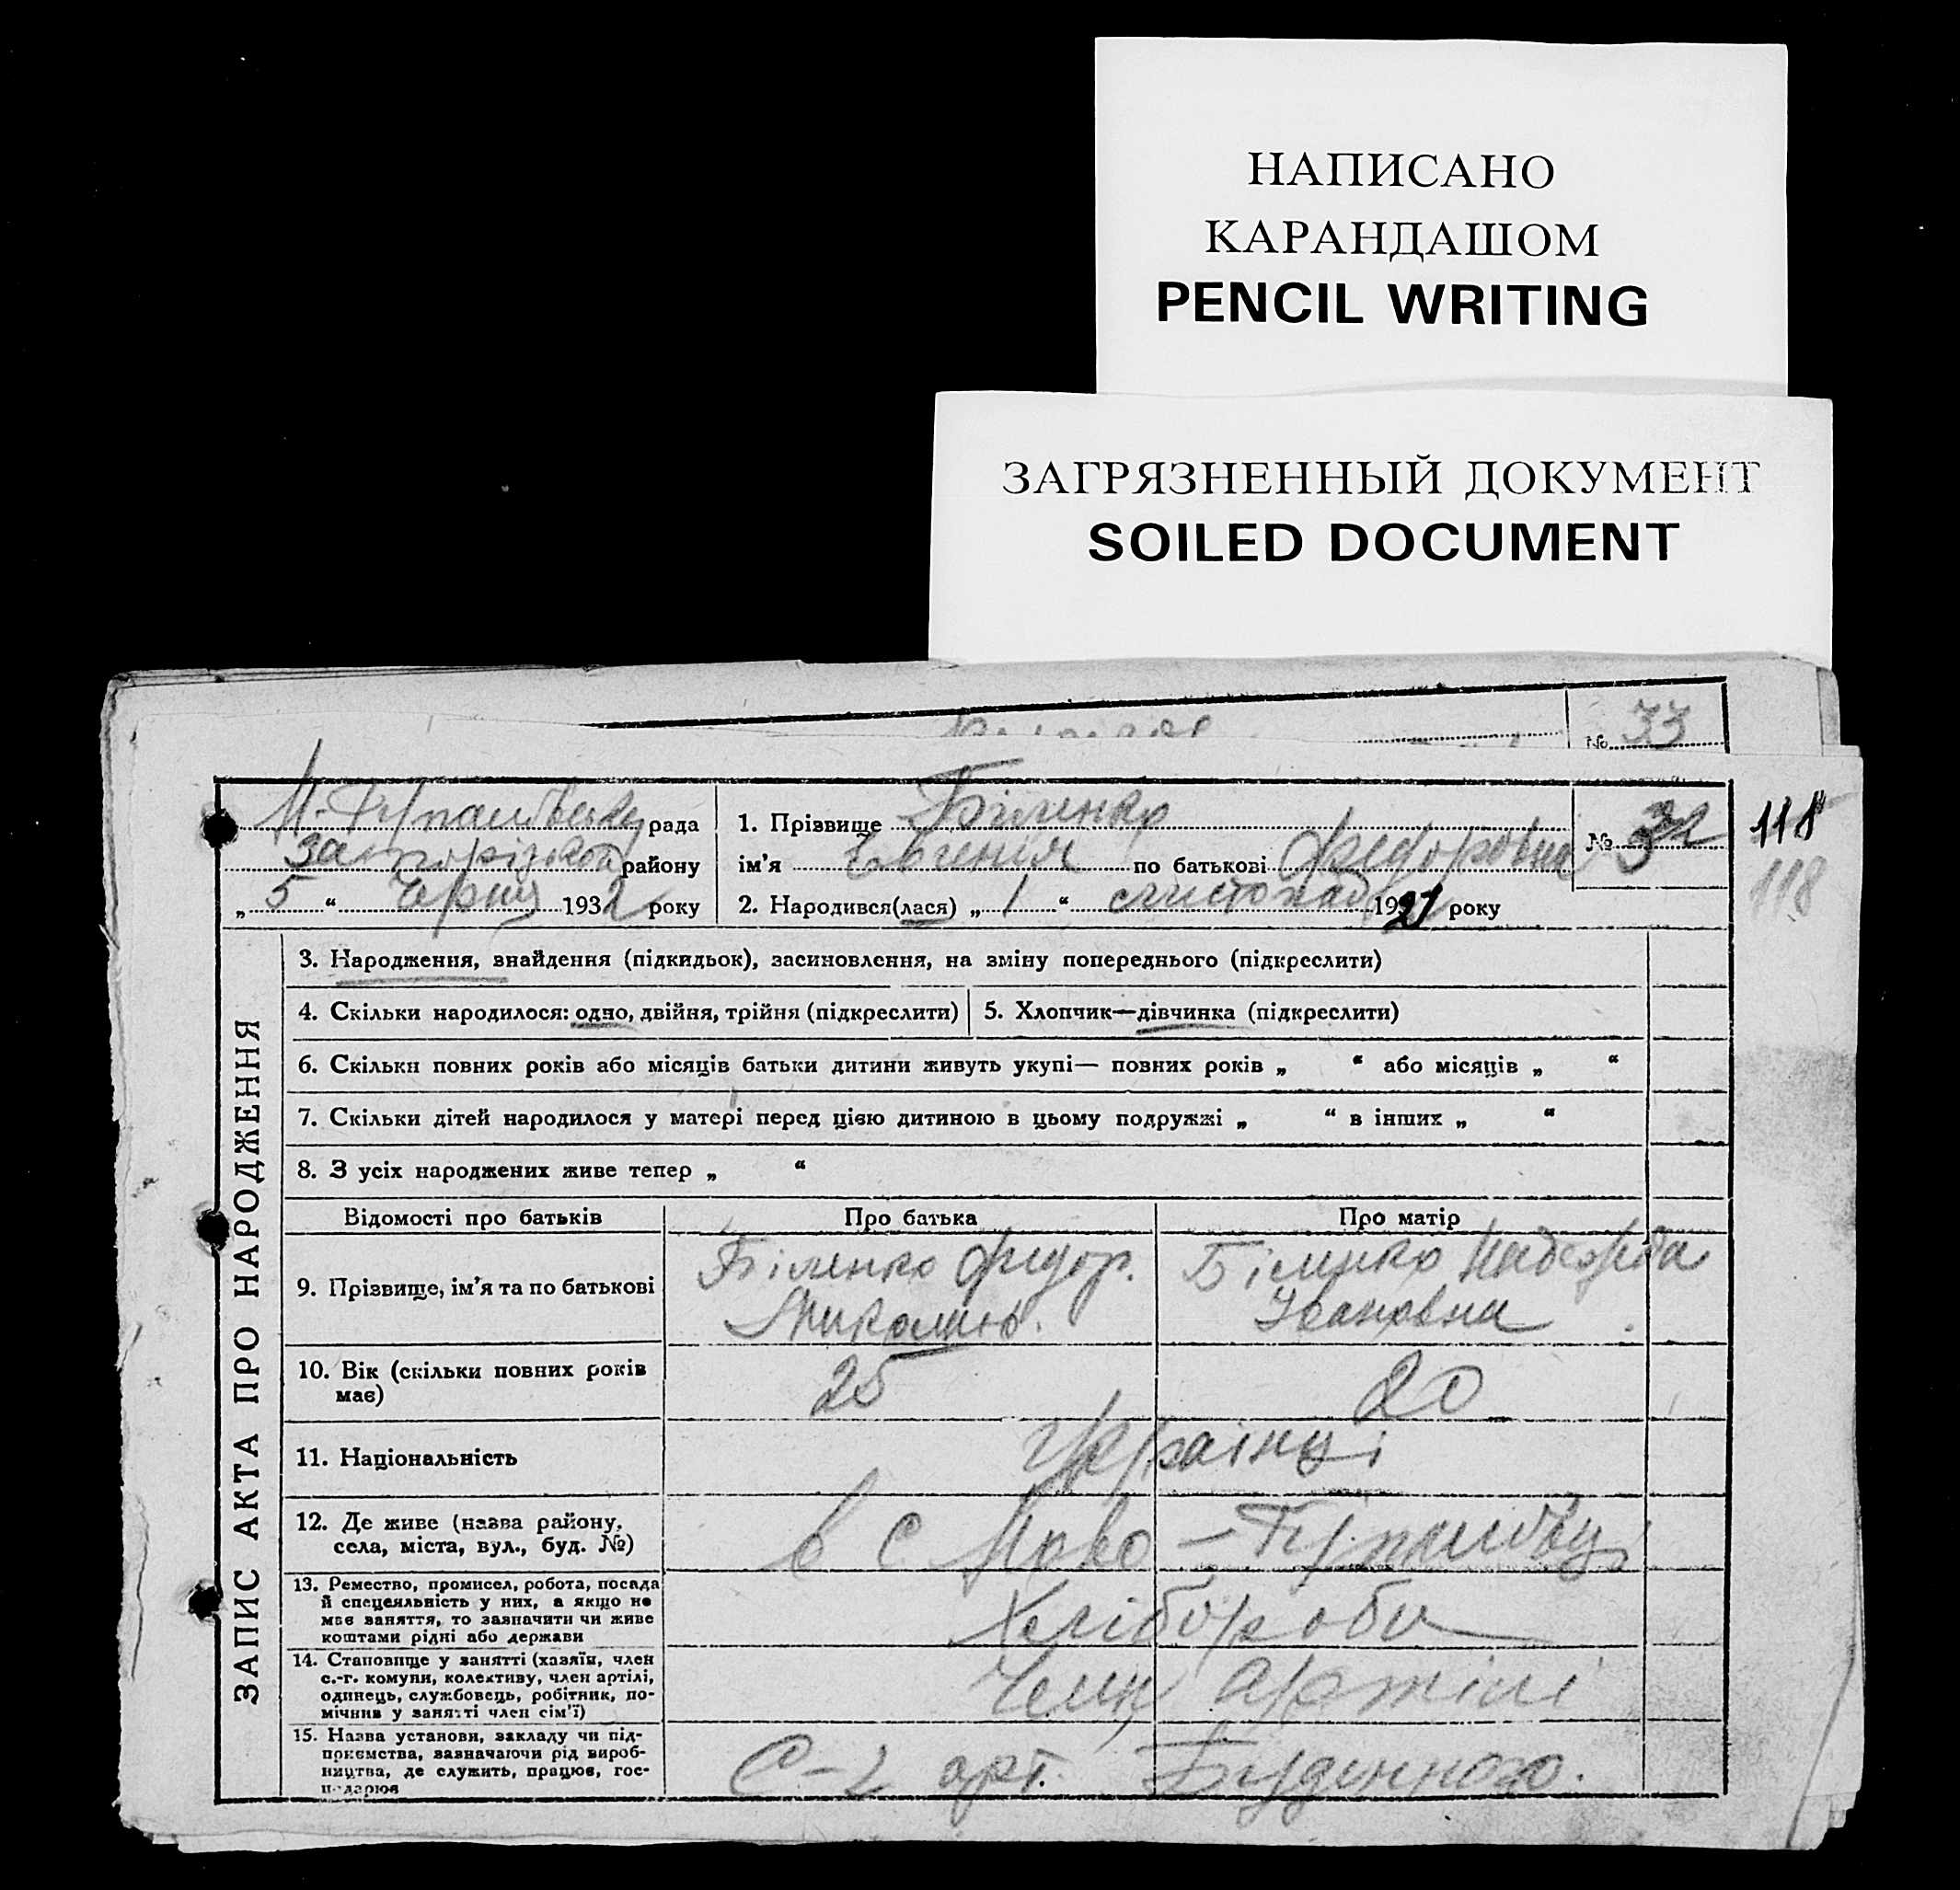 НАПИСАНО
КАРАНДАШОМ
PENCIL WRITING
ЗАГРЯЗНЕННЫЙ ДОКУМЕНТ
SOILED DOCUMENT
№ 33
рада
району
„ 5 “ Червня 1932 року
1. Прізвище Біленко
ім'я Євгенія по батькові Федоровна
№ 32
118
118
2. Народився(лася) „ 1 “ листопад 1921 року
ЗАПИС АКТА ПРО НАРОДЖЕННЯ
3. Народження, знайдення (підкидьок), засиновлення, на зміну попереднього (підкреслити)
4. Скільки народилося: одно, двійня, трійня (підкреслити) 5. Хлопчик—дівчинка (підкреслити)
6. Скільки повних років або місяців батьки дитини живуть укупі— повних років „ “ або місяців „ “
7. Скільки дітей народилося у матері перед цією дитиною в цьому подружжі „ “ в інших „ “
8. З усіх народжених живе тепер „ “
Відомості про батьків Про батька Про матір
9. Прізвище, ім'я та по батькові
Біленко Федор.
Миколаїв.
Біленко Надежда
Івановна
10. Вік (скільки повних років
має)
25 20
11. Національність Українці
12. Де живе (назва району,
села, міста, вул., буд. №)
в с Ново -
13. Ремество, промисел, робота, посада
й спецеяльність у них, а якщо не
має заняття, то зазначити чи живе
коштами рідні або держави
Хлібороби
14. Становище у занятті (хазяїн, член
с.-г. комуни, колективу, член артілі,
одинець, службовець, робітник, по-
мічник у занятті член сім'ї)
Член артілі
15. Назва установи, закладу чи під-
приємства, зазначаючи рід вироб-
ництва, де служить, працює, гос-
подарює
С-г арт. Будьонного.